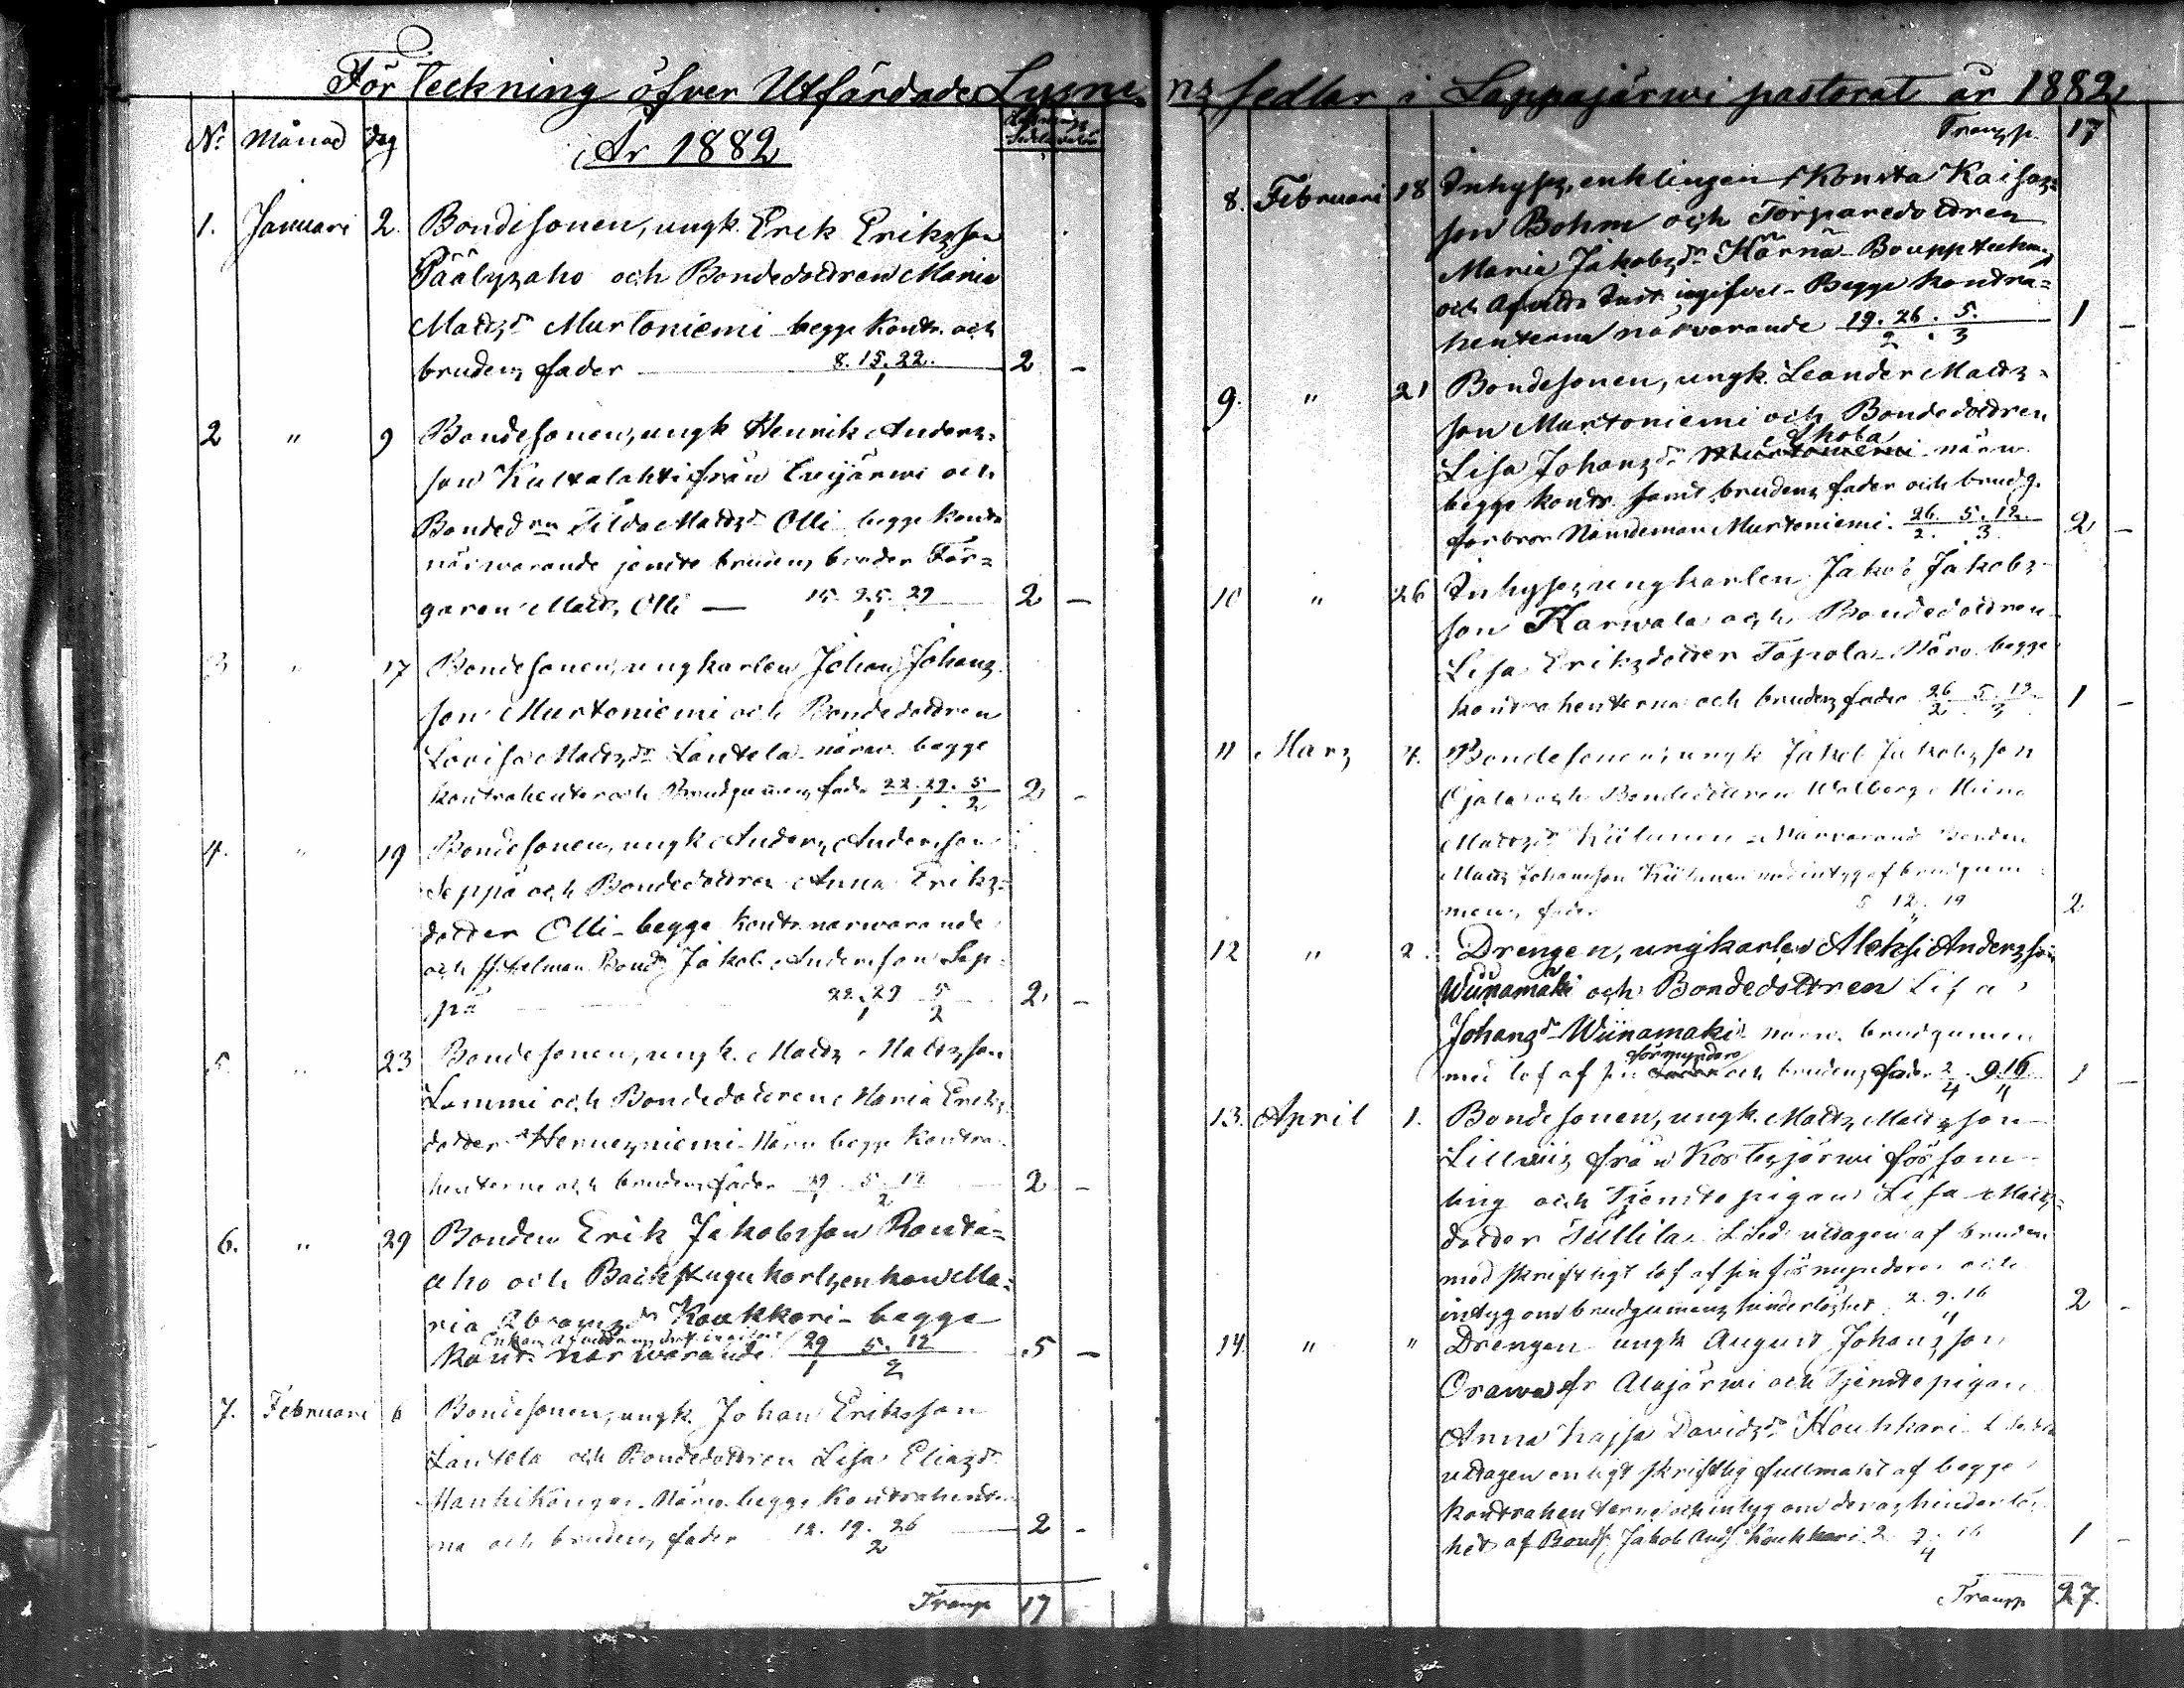 Förteckning öfver Utfärdade Lysnings sedlar i Lappajärwi pastorat år 1882
No Månad dag
År 1882
1. Januari 2. Bondesonen, ungk. Erek Eriksson
Päälysaho och Bondedottren Maria
Mattsdr Murtoniemi begge Kontr. och
brudens fader 8. 15. 22. / 1 2 -
2 " 9 Bondesonen, ungk Henrik Anders=
son Kultalahti från Evijärwi och
Bondedrn Tilda Mattsdr Olli begge kontr
närwarande jemte brudens broder Tor=
paren Matts Olli — 15. 25. 29 / 1 2 -
3 " 17 Bondesonen, ungkarlen Johan Johans
son Murtoniemi och Bondedottren
Lovisa Mattsdr Lantela närw. begge
kontrahenter och Brudgummens fader 22. 29. 5 / 1 . 2 2 -
4. " 19 Bondesonen, ungk Anders Andersson
Seppä och Bondedottren Anna Eriks=
dotter Olli - begge kontr närwarande
och Bond. Jakob Andersson Sep=
pä 22. 29 5 / 1 2 2 -
5. " 23 Bondesonen, ungk. Matts Mattsson
Lammi och Bondedottren Maria Eriks
dotter Hernesniemi Närw begge Kontra=
henterne och brudens fader 29 . 5. 12 / 1 2 2 -
6. " 29 Bonden Erik Jakobsson Ranta=
aho och Backstugukarlsenkan Ma=
ria Abramsdr Koukkari - begge
kontr närwarande 29 5. 12 / 1 2 5 -
7. Februari 6 Bondesonen, ungk. Johan Eriksson
Lantela och Bondedottren Lisa Eliasdr
Hankikangas. Närw. begge Kontrahenter=
na och brudens fader 12. 19. 26 / 2 2 -
Transp 17
Transp. 17
8. Februari 18 Inhyses, enklingen Konsta Kaisas=
son Bohm och Torparedottren
Maria Jakobsdr Härnä - Boupptekn.
och Afvittr Inst. ingifvet - Begge kontra=
henterna närvarande 19. 26 . 5. / 2 . 3 1 -
9. " 21 Bondesonen, ungk. Leander Matts=
son Murtoniemi och Bondedottren
Ahola
Lisa Johansdr Murtoniemi närw.
begge kontr. samt brudens fader och brudg.
farbror Nämdeman Murtoniemi. 26. 5. 12. / 2. 3 2 -
10 " 26 Inhyses, ungkarlen Jakob Jakobs=
son Karwala och Bondedottren
Lisa Eriksdotter Tapola - Närv. begge
kontrahenterna och brudens fader 26 5. 12 / 2 3 1 -
11 Mars 4. Bondesonen, ungk Jakob Jakobsson
Ojala och Bondedottren Walborg Mina
Mattsdr Kiilunen - Närvarande Bonden
Matts Johansson Kiilunen med intyg af brudgum=
mens fader 5 12. 19 2
12 " 2. Drengen, ungkarlen Aleksi Andersson
Wiinamäki och Bondedottren Lisa
Johansdr Wiinamäki närw. brudgummen
förmyndare
med lof af sin fader och brudens fader 2 . 9. 16 / 4 1 -
13. April 1. Bondesonen, ungk. Matts Mattsson
från Kortesjärwi försam=
ling och Tjenstepigan Lisa Matts=
dotter Tüllila. L. sed. uttagen af bruden
med skriftligt lof af sin förmyndare och
intyg om brudgummens hinderlöshet 2. 9. 16 2 -
14. " " Drengen ungk August Johansson
Orawa fr Alajärwi och Tjenstepigan
Anna Kajsa Davidsdr Koukkari L. sedeln
uttagen enligt skriftlig fullmakt af begge
kontrahenterne och intyg om deras hinderlös=
het af Bonds. Jakob Ands Koukkari 2. 9. 16 / 4 1 -
Transp 27.